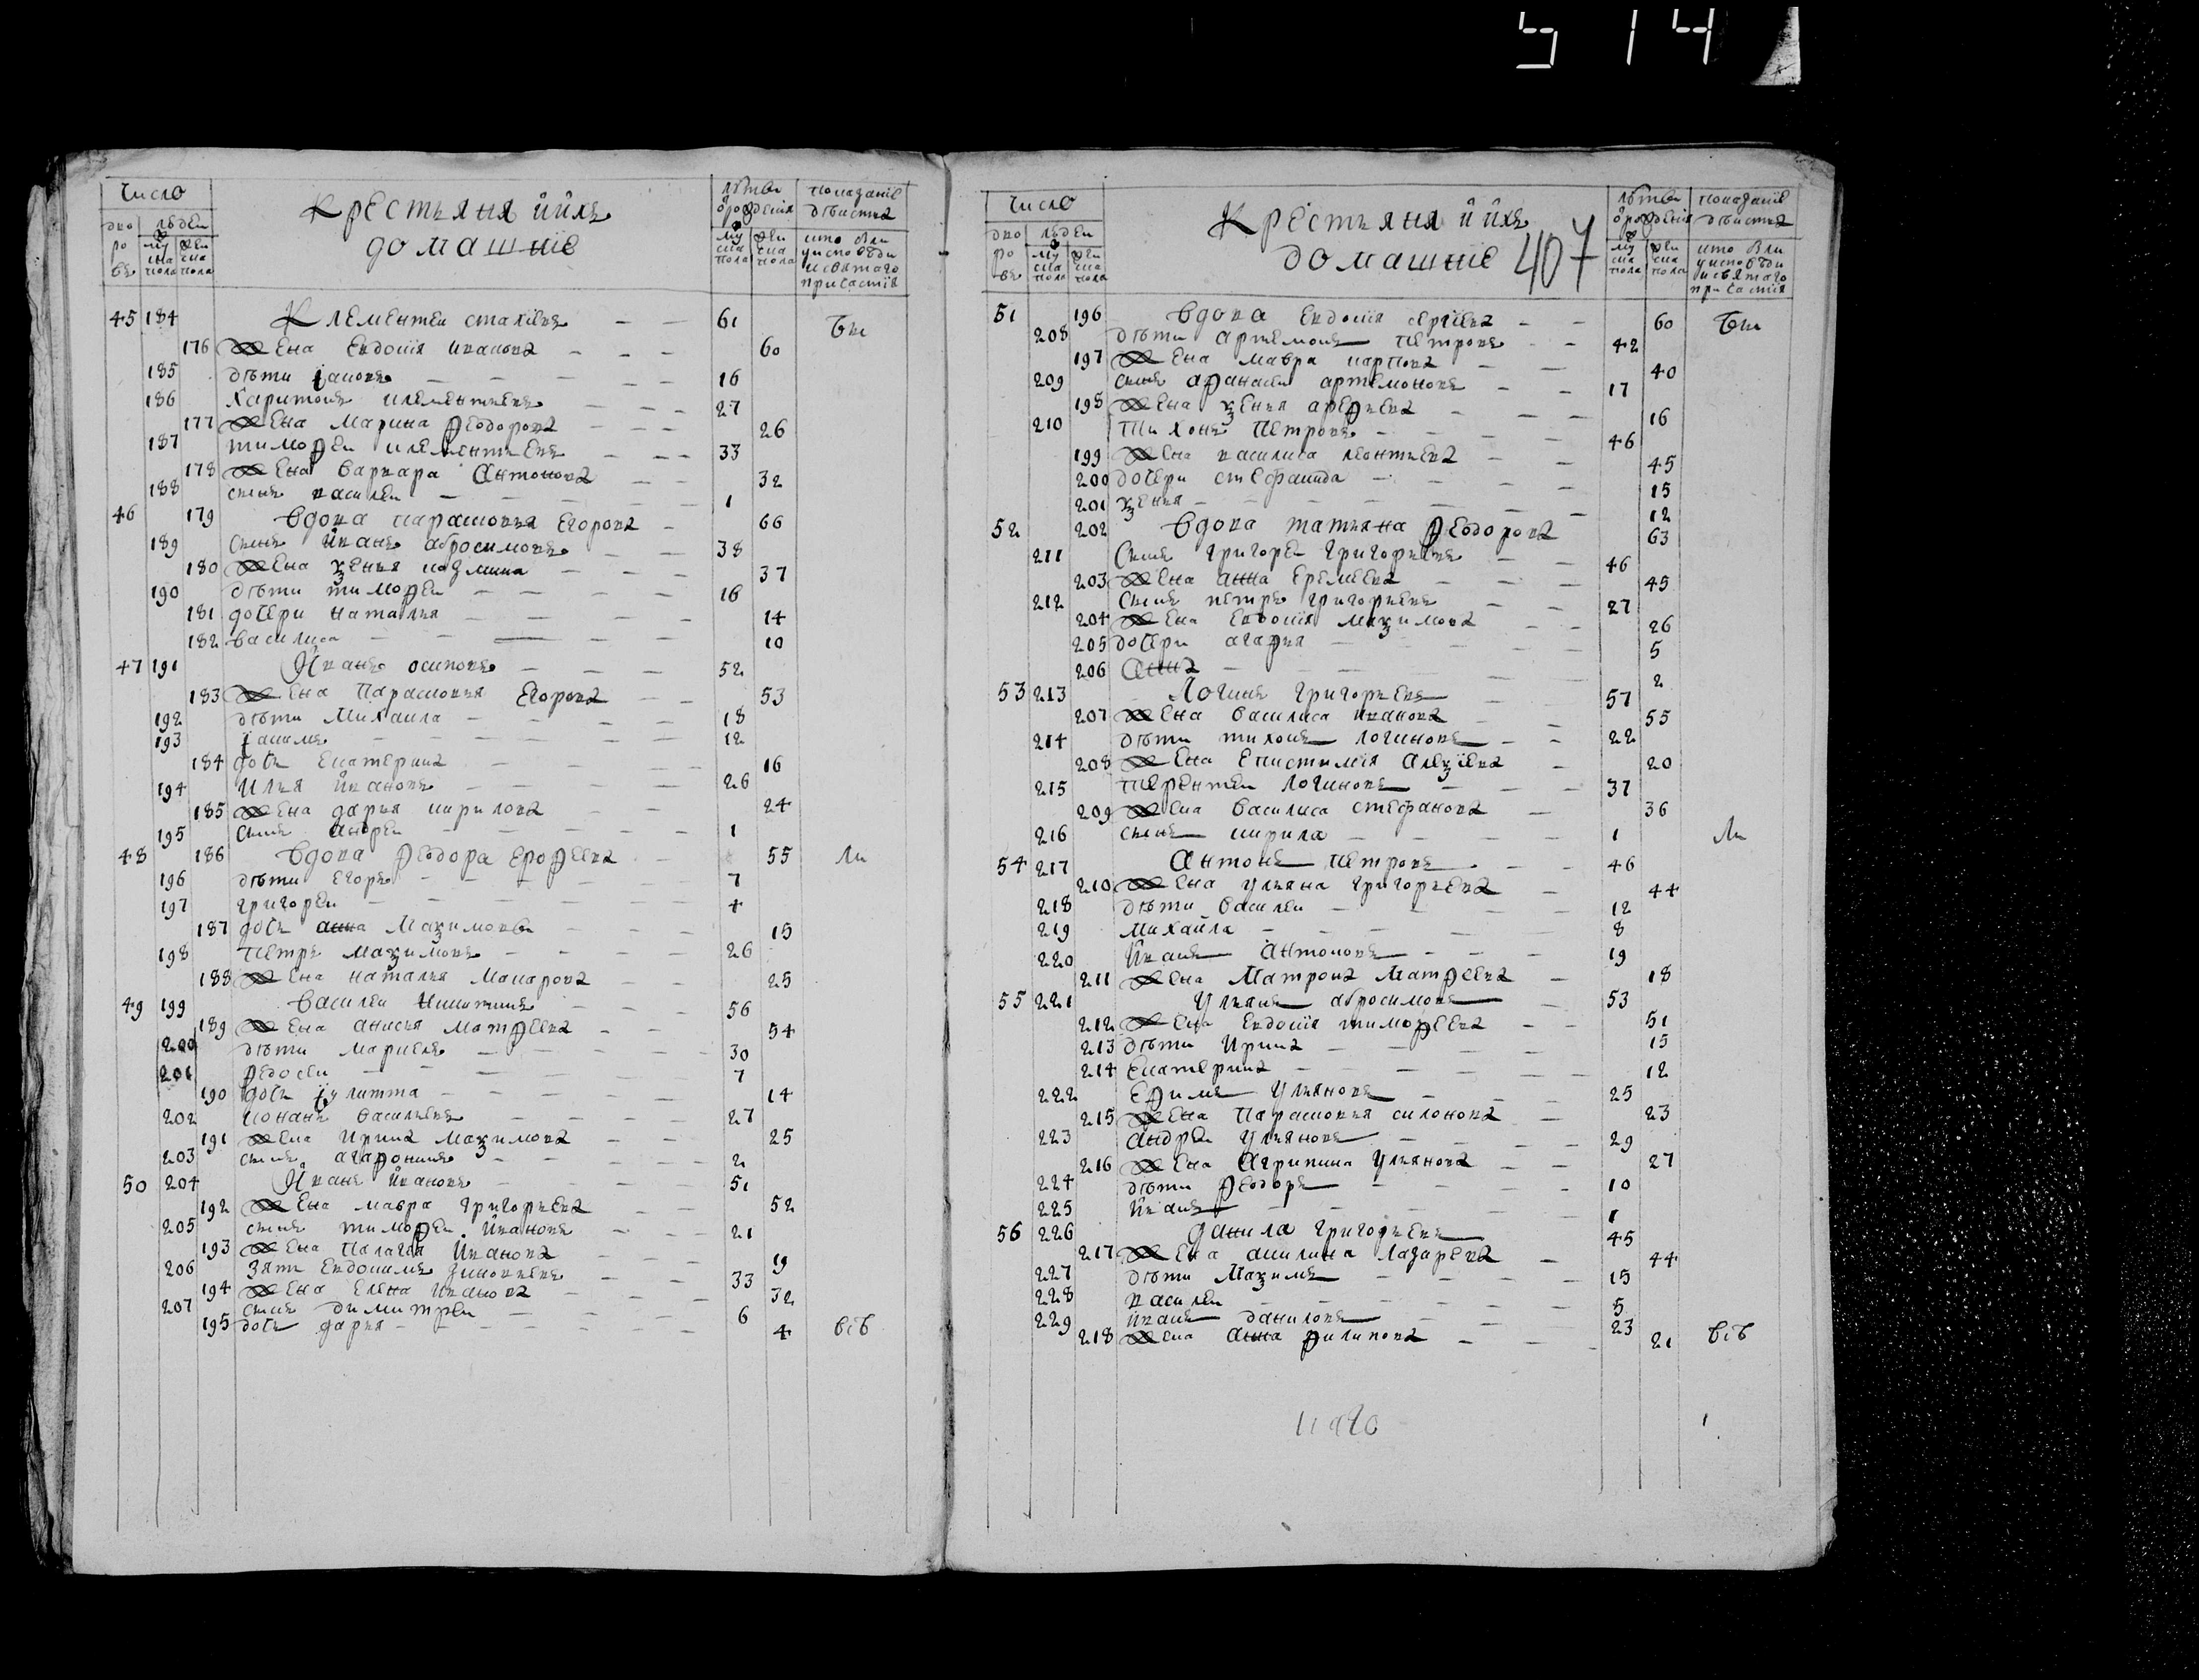 514
Число
Крестьяня и ихъ
домашние
лѣтъ
ѿ рождения
показание
действа
дво
ро
въ
людеи
му
ска
пола
жен
ска
пола
му
ска
пола
жен
ска
пола
кто были
у исповѣди
и святаго
причастия
45 184 Клементеи 61
176 жена Евдокия Иванова 60
185 дѣти 16
186 Харитонъ Клементьевъ 27
177 жена Марина Ѳеодорова 26
187 тимоѳеи Клементьевъ 33
178 жена варвара Антонова 32
188 сынъ василеи 1
46 179 вдова парасковья Егорова 66
189 сынъ Иванъ абросимовъ 38
180 жена ѯенья козмина 37
190 дѣти тимоѳеи 16
181 дочери наталья 14
182 василиса 10
47 191 Иванъ осиповъ 52
183 жена Парасковья Егорова 53
192 дѣти Михаила 18
193 иакимъ 12
184 дочь Екатерина 16
194 Илья Ивановъ 26
185 жена дарья кирилова 24
195 сынъ Андреи 1
48 186 вдова Ѳеодора Ероѳеева 55
196 дѣти Егоръ 7
197 григореи 4
187 дочь анна Маѯимова 15
198 Петръ Маѯимовъ 26
188 жена наталья Макарова 25
49 199 василеи Никитинъ 56
189 жена анисья матѳеева 54
200 дѣти маркелъ 30
201 Ѳедосеи 7
190 дочь иулитта 14
202 конанъ васильевъ 27
191 жена Ирина маѯимова 25
203 сынъ агаѳоникъ 2
50 204 Иванъ Ивановъ 51
192 жена мавра григорьева 52
205 сынъ тимоѳеи Ивановъ 21
193 жена Палагия Иванова 19
206 зять Евдокимъ зиновьевъ 33
194 жена Елена Иванова 32
207 сынъ димитреи 6
195 дочь дарья 4
Число
Крестьяня и ихъ
домашние 407
лѣтъ
ѿ рождения
показание
действа
дво
ро
въ
людеи
му
ска
пола
жен
ска
пола
му
ска
пола
жен
ска
пола
кто были
у исповѣди
и святаго
причастия
51 196 вдова Евдокия 60
208 дѣти Артемонъ Петровъ 42
197 жена мавра карпова 40
209 сынъ аѳанасеи артемоновъ 17
198 жена ѯенья ареѳьева 16
210 Тихонъ Петровъ 46
199 жена василиса леонтьева 45
200 дочери стефанида 15
201 ѯенья 12
52 202 вдова татьяна Ѳеодорова 63
211 сынъ григореи григорьевъ 46
203 жена анна Еремеева 45
212 сынъ петръ григорьевъ 27
204 жена Евдокия маѯимова 26
205 дочери агаѳья 5
206 Анна 2
53 213 Логинъ григорьевъ 57
207 жена василиса иванова 55
214 дѣти тихонъ логиновъ 22
208 жена Епистимия Алеѯиева 20
215 терентеи логиновъ 37
209 жена василиса стефанова 36
216 сынъ кирила 1
54 217 Антонъ петровъ 46
210 жена ульяна григорьева 44
218 дѣти василеи 12
219 михаила 8
220 Иванъ Антоновъ 19
211 жена Матрона Матѳеева 18
55 221 ульянъ абросимовъ 53
212 жена Евдокия тимоѳеева 51
213 дѣти Ирина 15
214 Екатерина 12
222 Еѳимъ ульяновъ 25
215 жена Парасковья силонова 23
223 Андреи ульяновъ 29
216 жена Агрипина ульянова 27
224 дѣти Ѳеодоръ 10
225 Иванъ 1
56 226 данила григорьевъ 45
217 жена акилина лазарева 44
227 дѣти Маѯимъ 15
228 василеи 5
229 иванъ даниловъ 23
218 жена анна Ѳилипова 21